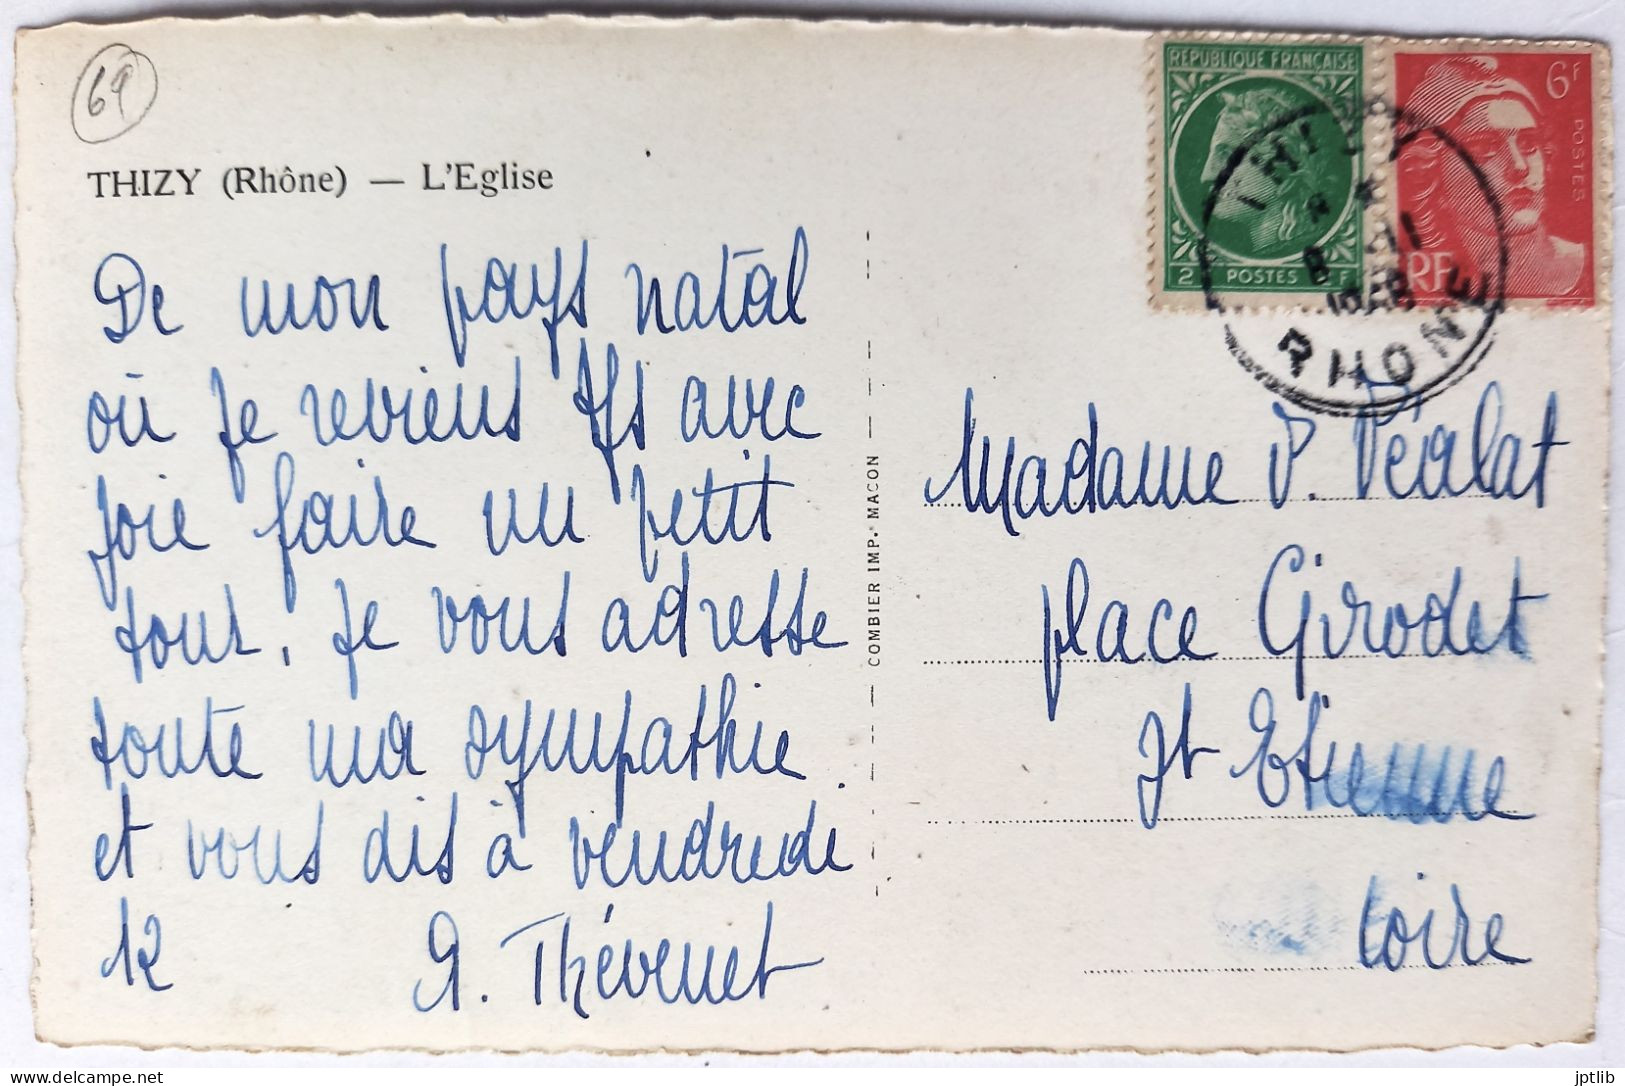 69
THIZY (Rhône) — L'Eglise
De mon pays natal
où je reviens tjs avec
joie faire un petit
tour, je vous adresse
toute ma sympathie
et vous dis à vendredi
12
G. Thévenet
COMBIER IMP. MACON
REPUBLIQUE FRANÇAISE
2 POSTES F
6F
POSTES
RF
THIZY
8 -11
RHONE
Madame P. Péalat
place Girodet
St Etienne
Loire
delcampe.net
jptlib